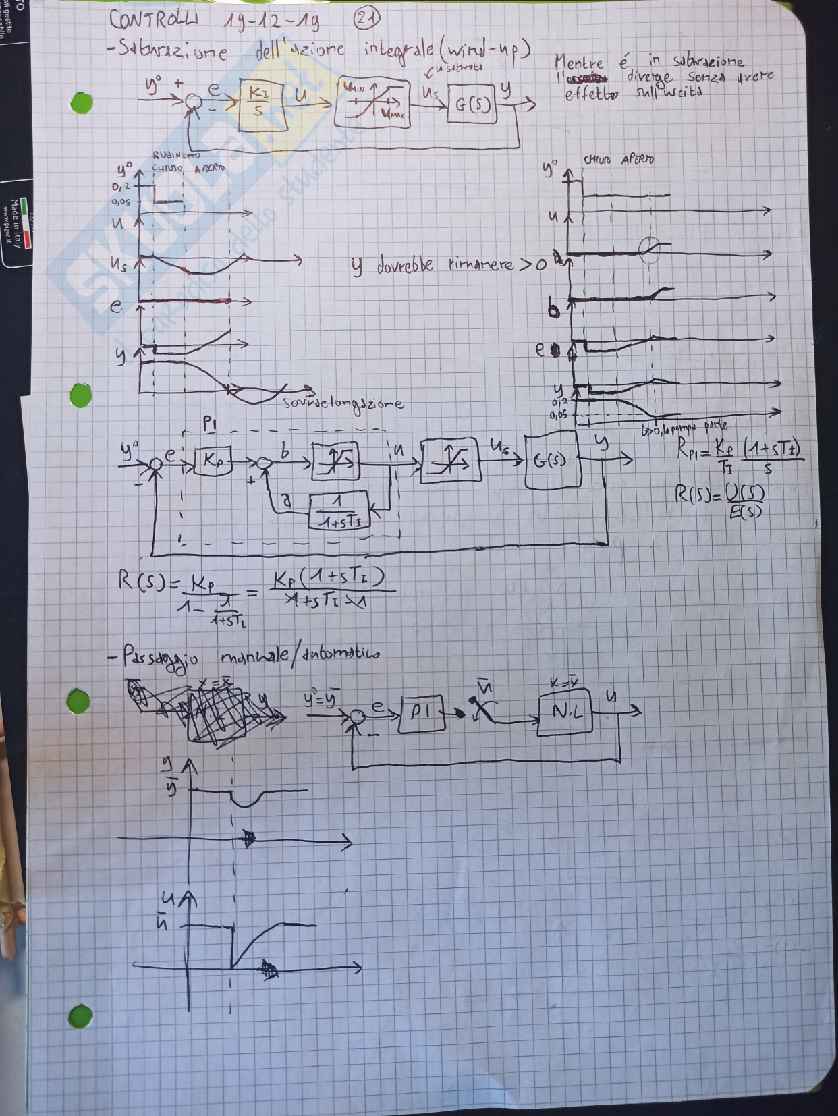 CONTROLLI 19-12-19 (21)
- Saturazione dell'azione integrale (wind-up)
Mentre é in saturazione
diverge senza avere
effetto sull'uscita
y° + e K_I/s u u_min u_max u_s G(s) y
-
RUBINETTO
CHIUSO APERTO
y°
0,2
0,05
u
u_s
e
y
sovraelongazione
CHIUSO APERTO
y°
u
y dovrebbe rimanere > 0
b
e
y
0,2
0,05
PI
y° e K_P b u u_s G(s) y
- +
a 1/(1+sT_I)
R_PI = K_P/T_I (1+sT_I)/s
R(s) = U(s)/E(s)
R(s) = K_P/(1 - 1/(1+sT_I)) = K_P(1+sT_I)/(1+sT_I-1)
- Passaggio manuale/automatico
x = x̄
y
y° = ȳ e PI ū x = x̄ N.L y
-
y
ȳ
u
ū
SKUOLA.net